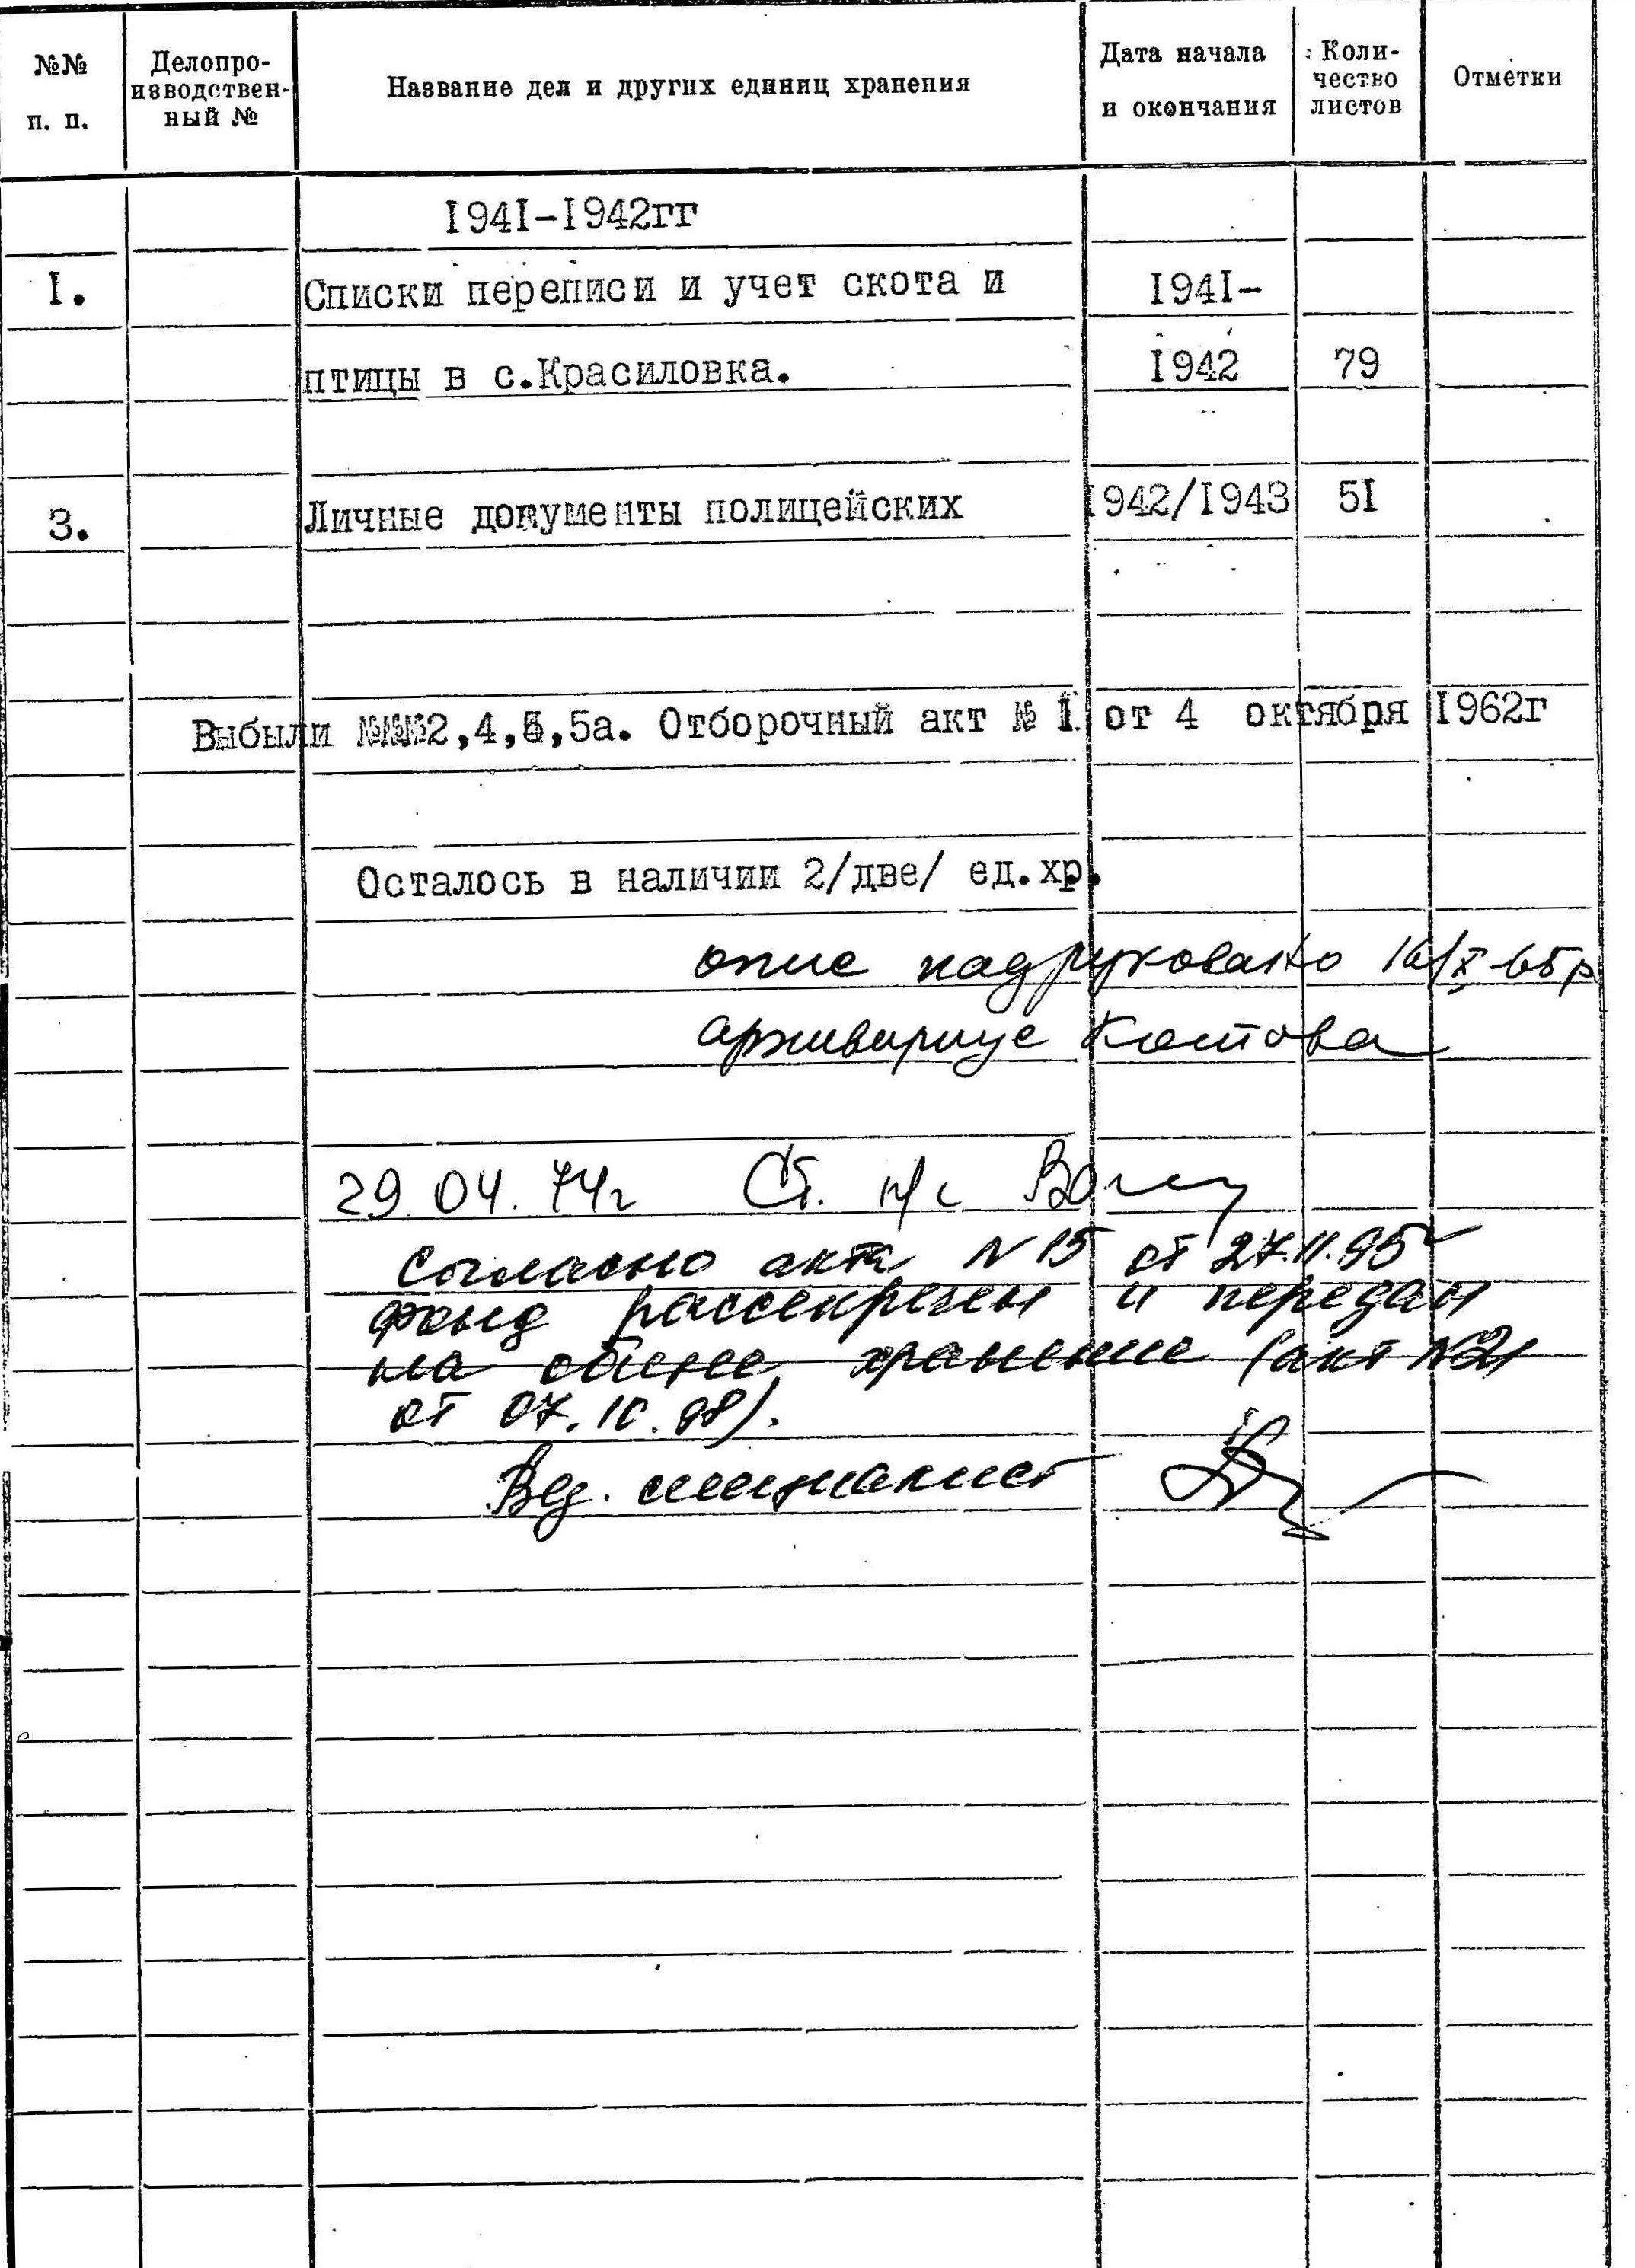 №№ п. п.
Делопро-
изводствен-
ный №
Название дел и других единиц хранения
Дата начала
и окончания
Коли-
чество
листов
Отметки
I94I-I942гг
I. Списки переписи и учет скота и I94I-
птицы в с.Красиловка. I942 79
3. Личные документы полицейских I942/I943 5I
Выбыли №№№2,4,5,5а. Отборочный акт № 1 от 4 октября I962г
Осталось в наличии 2/две/ ед.хр.
опис надруковано 16/X-65р
архивариус
29.04.74г Ст. н/с
Согласно акта N 15 от 27.11.95
фонд рассекречен и передан
на общее хранение (акт №21
от 07.10.98).
Вед. специалист